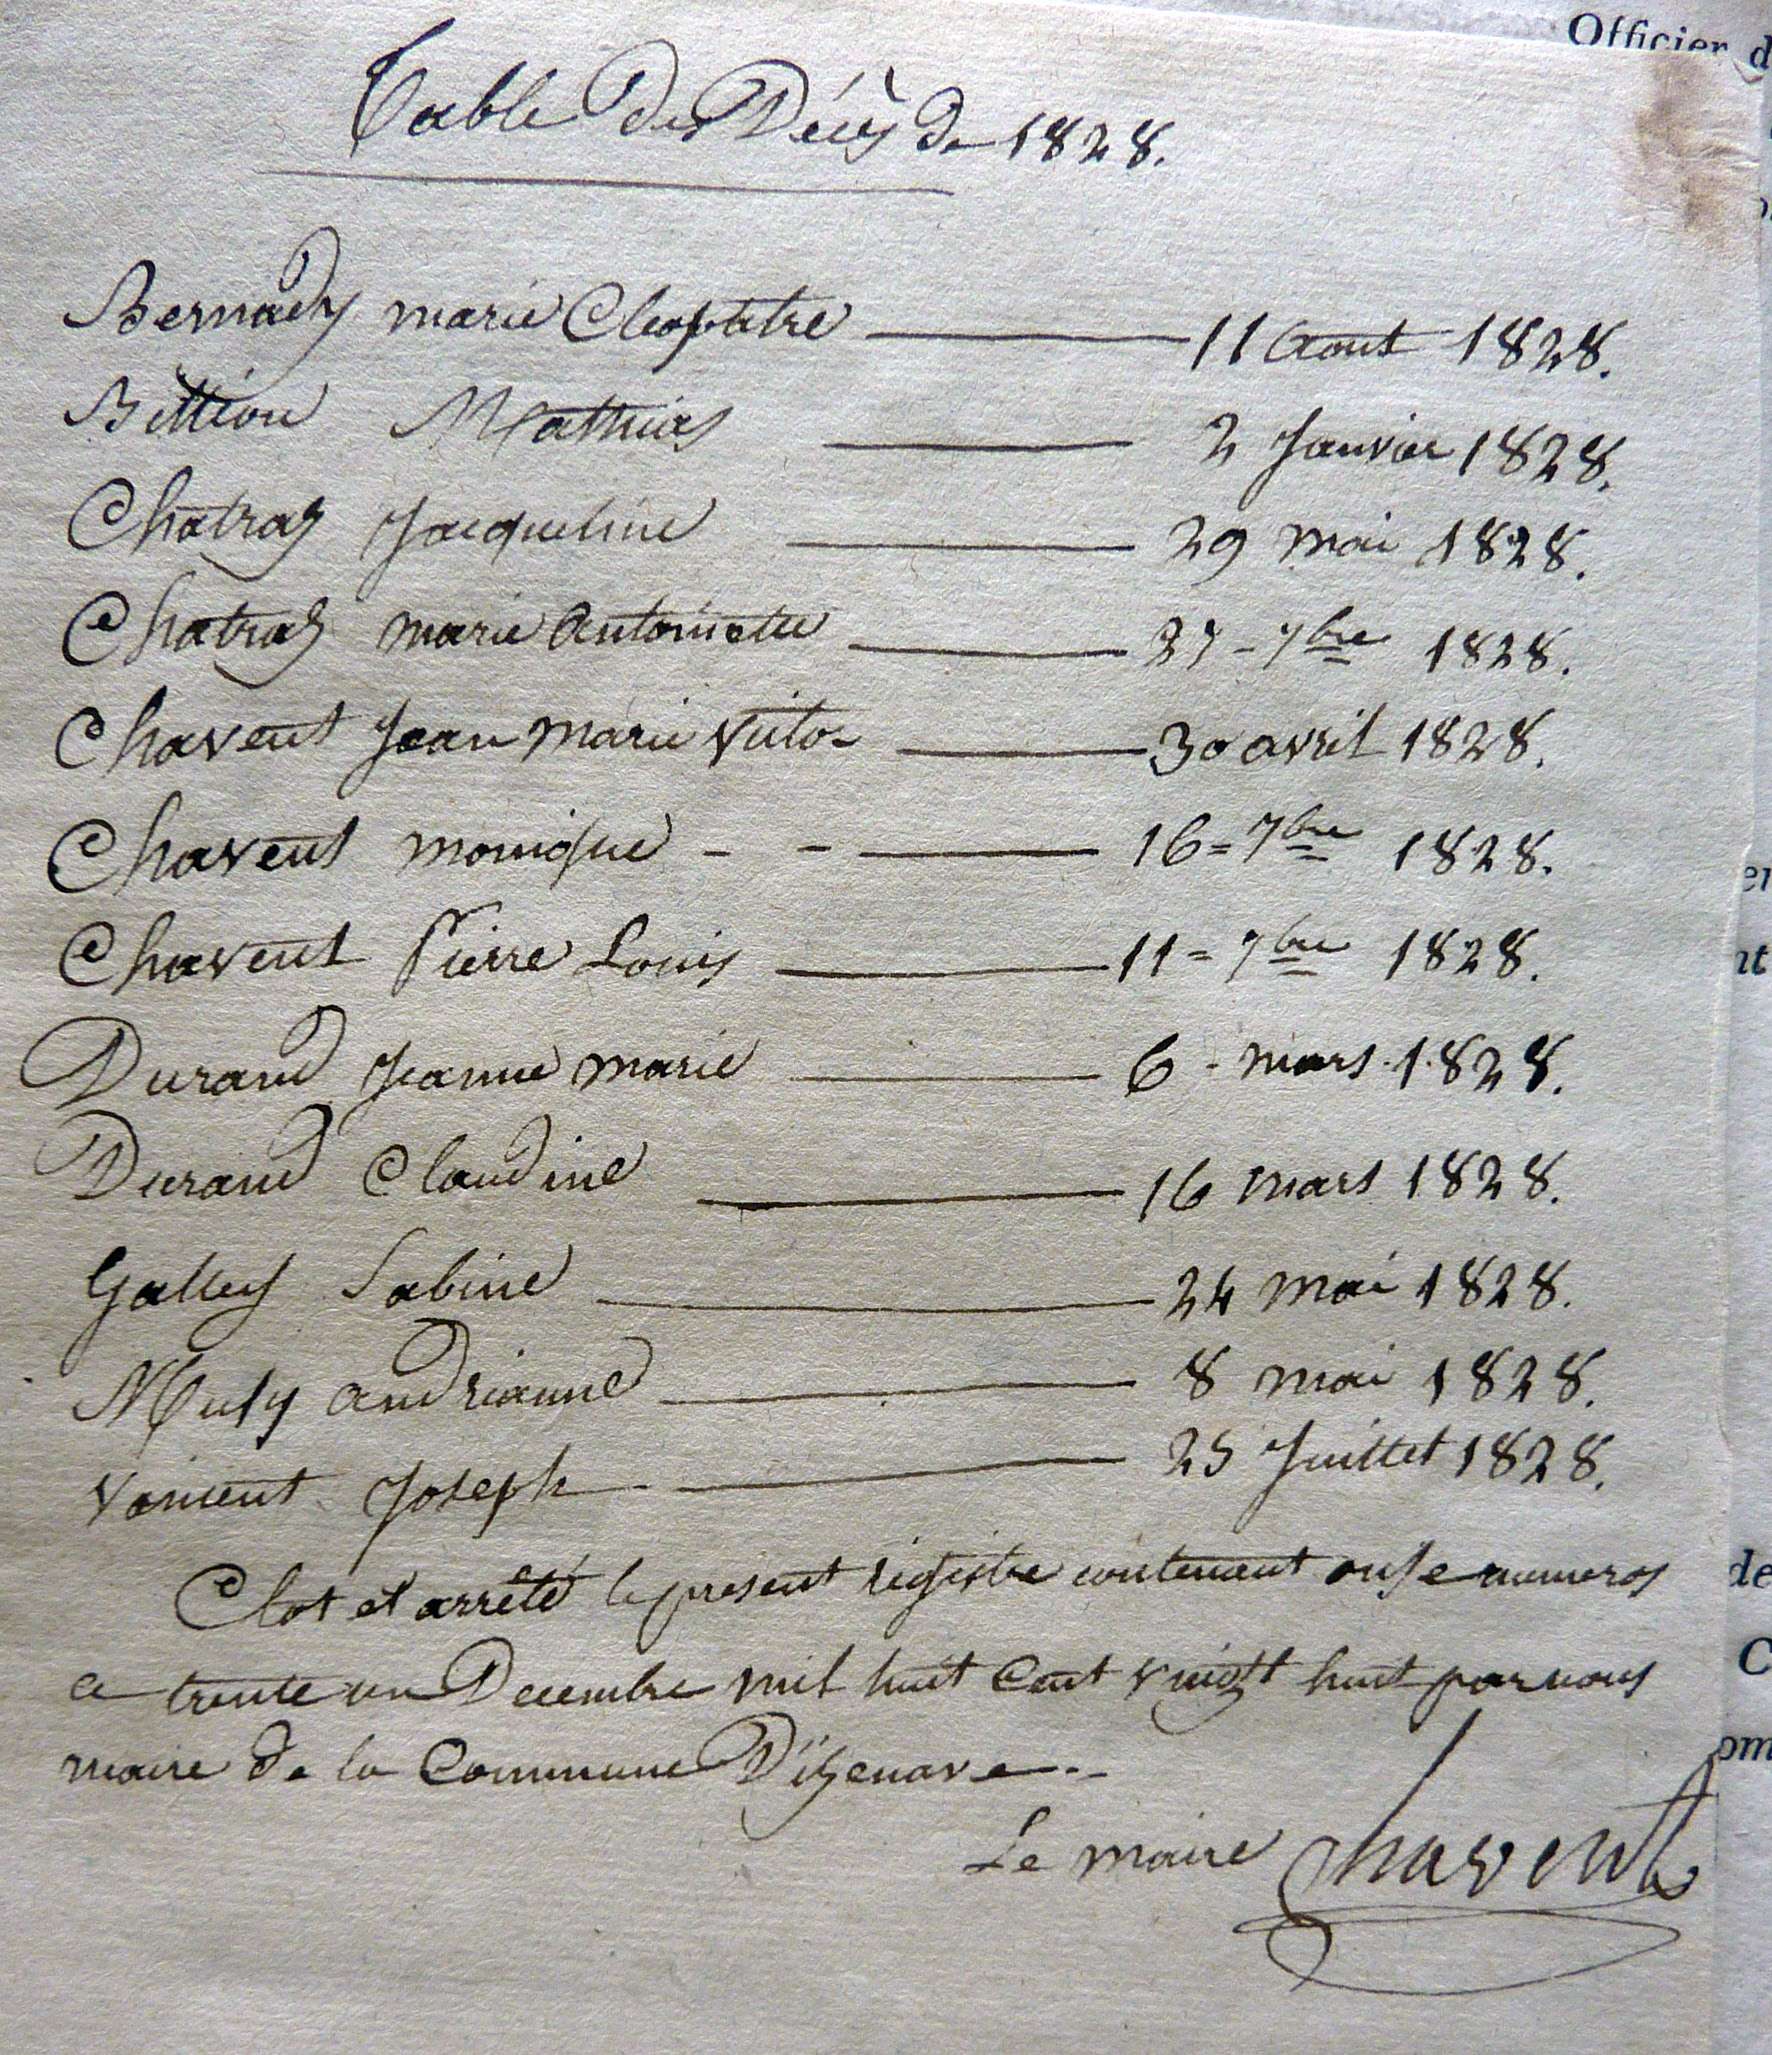 Officier d
Table Des Décès De 1828.
Bernardy marie Cleopatre 11 Aout 1828.
Billion Mathias 2 Janvier 1828.
Chatraz Jacqueline 29 mai 1828.
Chatraz marie Antoinette 27 - 7bre 1828.
Chavent Jean marie victor 30 avril 1828.
Chavent monique - - 16 = 7bre 1828.
Chavent Pierre Louis 11 = 7bre 1828.
Durand Jeanne marie 6 - mars 1828.
Durand Claudine 16 mars 1828.
Galley Sabine 24 mai 1828.
andrianne 8 mai 1828.
Joseph 25 Juillet 1828.
Clot et arrêté le present registre contenant onze numeros
ce trente un Decembre mil huit Cent vingt huit par nous
maire De la Commune D'izenave
Le maire Chavent
de
C
om